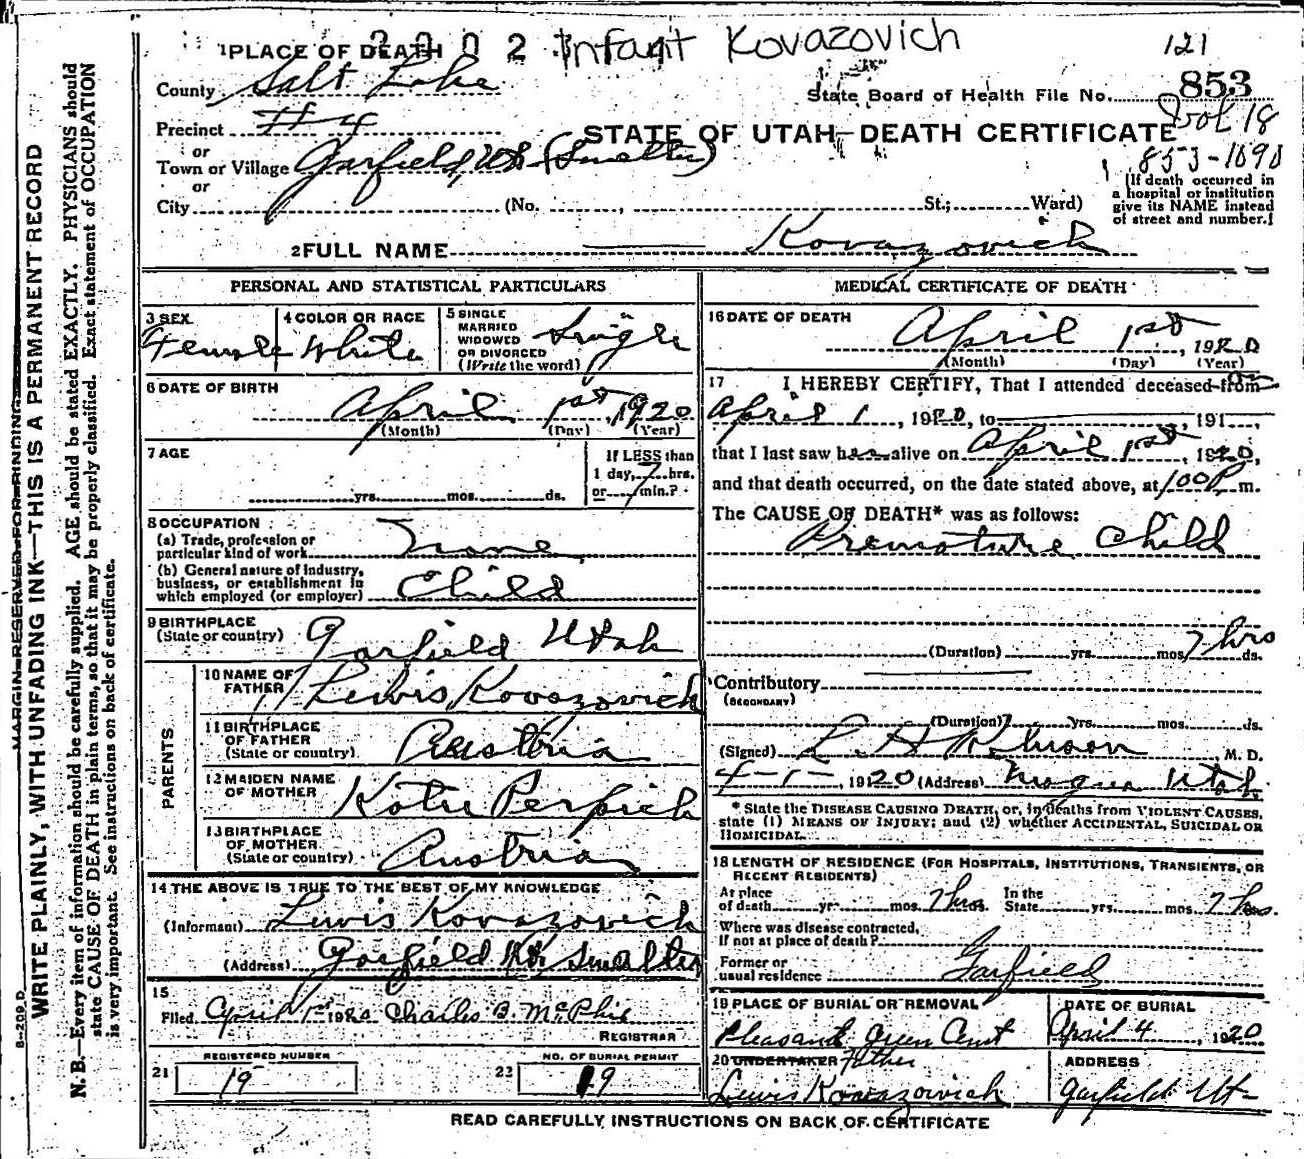 2202 Infant Kovazovich
121
1 PLACE OF DEATH
County Salt Lake
State Board of Health File No. 853
Vol 18
Precinct # 4
STATE OF UTAH—DEATH CERTIFICATE
853-1090
or
Town or Village Garfield, Ut (Smelter)
or
City (No. , St.; Ward)
[If death occurred in
a hospital or institution
give its NAME instead
of street and number.]
2 FULL NAME Kovazovich
PERSONAL AND STATISTICAL PARTICULARS
3 SEX Female
4 COLOR OR RACE White
5 SINGLE
MARRIED
WIDOWED
OR DIVORCED
(Write the word) Single
6 DATE OF BIRTH
April 1st, 1920
(Month) (Day) (Year)
7 AGE
yrs. mos. ds.
If LESS than
1 day, 7 hrs.
or min.?
8 OCCUPATION
(a) Trade, profession or
particular kind of work None
(b) General nature of industry,
business, or establishment in
which employed (or employer) Child
9 BIRTHPLACE
(State or country) Garfield Utah
PARENTS
10 NAME OF
FATHER Lewis Kovazovich
11 BIRTHPLACE
OF FATHER
(State or country) Austria
12 MAIDEN NAME
OF MOTHER Katie Perpich
13 BIRTHPLACE
OF MOTHER
(State or country) Austria
14 THE ABOVE IS TRUE TO THE BEST OF MY KNOWLEDGE
(Informant) Lewis Kovazovich
(Address) Garfield Ut Smelter
15
Filed April 1st 1920 Charles B. McPhie
REGISTRAR
REGISTERED NUMBER
21 19
NO. OF BURIAL PERMIT
22 19
MEDICAL CERTIFICATE OF DEATH
16 DATE OF DEATH
April 1st, 1920
(Month) (Day) (Year)
17 I HEREBY CERTIFY, That I attended deceased from
April 1, 1920, to , 191 ,
that I last saw her alive on April 1st, 1920,
and that death occurred, on the date stated above, at 1:00 P m.
The CAUSE OF DEATH* was as follows:
Premature Child
(Duration) yrs. mos. 7 hrs ds.
Contributory
(SECONDARY)
(Duration) yrs. mos. ds.
(Signed) M. D.
4-1-, 1920 (Address) Magna Utah
* State the DISEASE CAUSING DEATH, or, in deaths from VIOLENT CAUSES,
state (1) MEANS OF INJURY; and (2) whether ACCIDENTAL, SUICIDAL OR
HOMICIDAL.
18 LENGTH OF RESIDENCE (FOR HOSPITALS, INSTITUTIONS, TRANSIENTS, OR
RECENT RESIDENTS)
At place
of death yrs. mos. 7 hrs. In the
State yrs. mos. 7 hrs.
Where was disease contracted,
If not at place of death?
Former or
usual residence Garfield
19 PLACE OF BURIAL OR REMOVAL
Pleasant Green Cemt
DATE OF BURIAL
April 4, 1920
20 UNDERTAKER Father
Lewis Kovazovich
ADDRESS
Garfield Ut-
READ CAREFULLY INSTRUCTIONS ON BACK OF CERTIFICATE
MARGIN RESERVED FOR BINDING
WRITE PLAINLY, WITH UNFADING INK—THIS IS A PERMANENT RECORD
N. B.—Every item of information should be carefully supplied. AGE should be stated EXACTLY. PHYSICIANS should
state CAUSE OF DEATH in plain terms, so that it may be properly classified. Exact statement of OCCUPATION
is very important. See instructions on back of certificate.
B-209 D